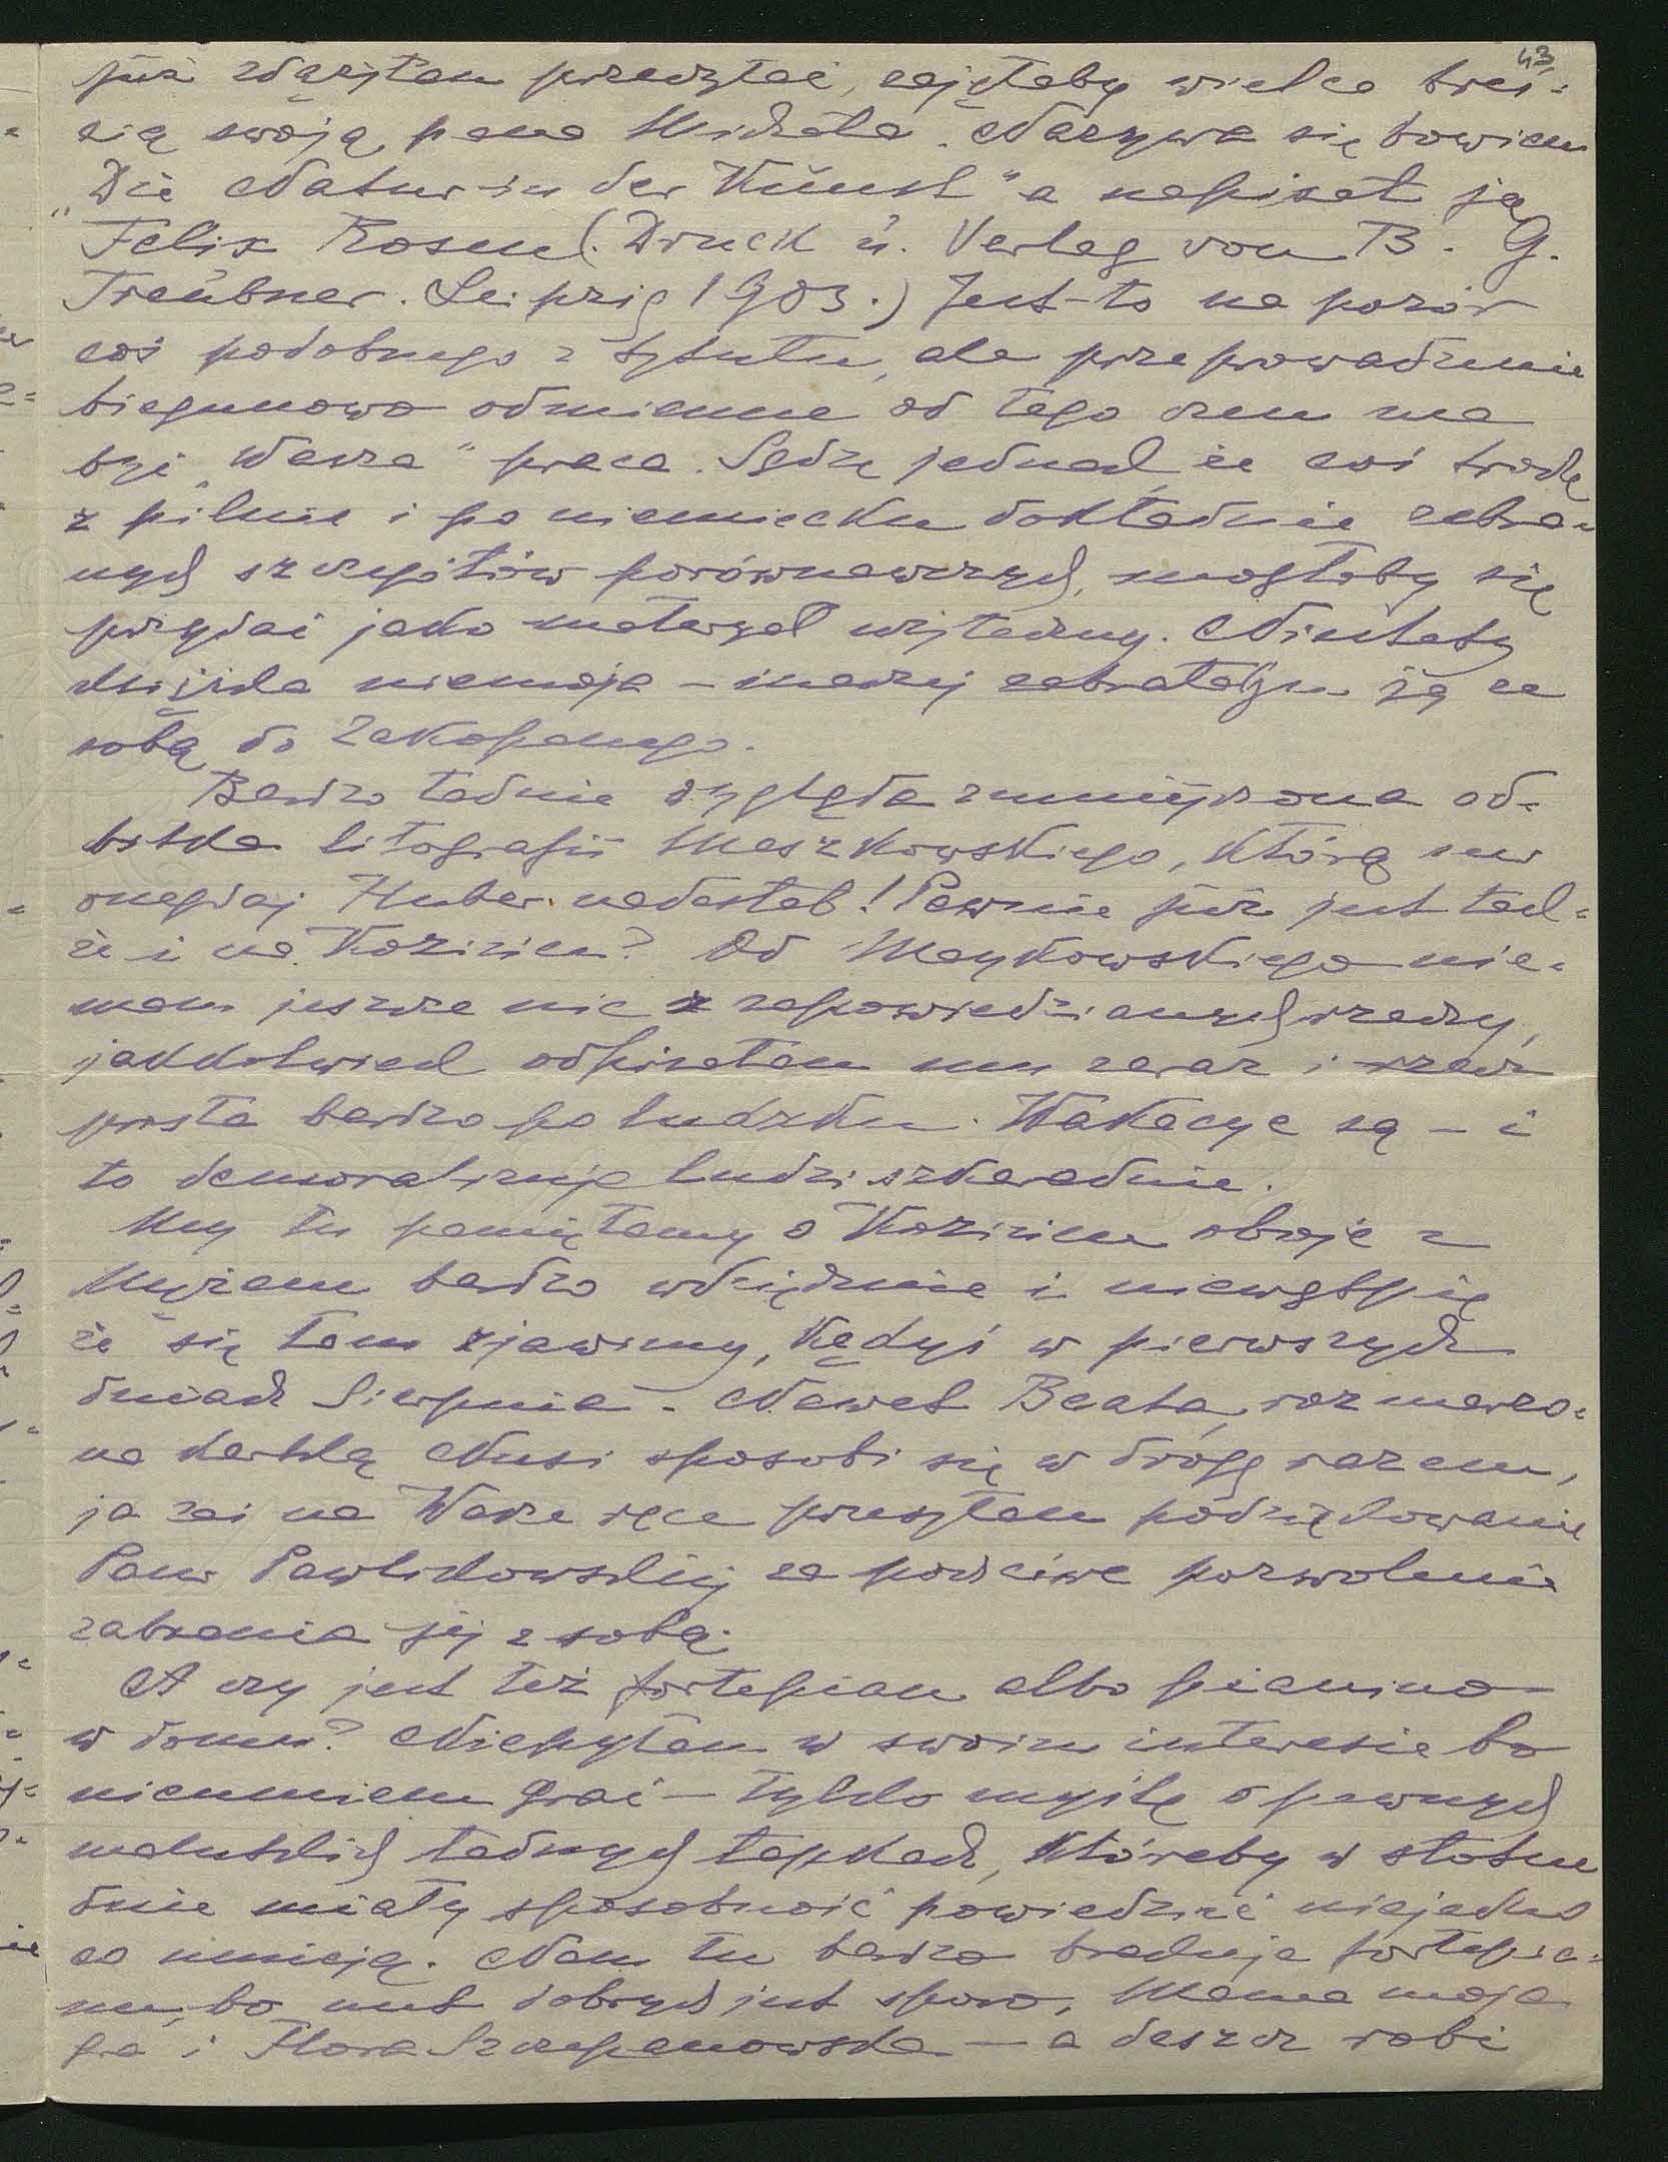 43
już zdążyłem przeczytać, zajęłaby wielce treś=
cią swoją pana Michała. Nazywa się bowiem
„Die Natur in der Kŭnst" a napisał ją
Felix Rosen (Drŭck ŭ. Verlag von B. G.
Treŭbner. Leipzig 1903.) Jest-to na pozór
coś podobnego z tytułu, ale przeprowadzenie
biegunowo odmienne od tego czem ma
być „Wasza" praca. Sądzę jednak, że coś trochę
z pilnie i po niemiecku dokładnie zebra=
nych szczegółów porównawczych, mogłoby się
przydać jako materyał użyteczny. Niestety
książka niemoja – inaczej zabrałbym ją ze
sobą do Zakopanego.
Bardzo ładnie wygląda zmniejszona od=
bitka litografii Maszkowskiego, którą nam
onegdaj Huber nadesłał! Pewnie już jest tak=
że i na Kozińcu? Od Maykowskiego nie=
mam jeszcze nic z zapowiedzianych rzeczy,
jakkolwiek odpisałem mu zaraz i rzecz
prosta bardzo po ludzku. Wakacye są – i
to demoralizuje ludzi szkaradnie.
My tu pamiętamy o Kozińcu oboje z
mężem bardzo wdzięcznie i niewątpię
że się tam zjawimy, kędyś w pierwszych
dniach Sierpnia. Nawet Beata, rozmarzo=
na kartką Nusi sposobi się w drogę razem,
ja zaś na Wasze ręce przesyłam podziękowanie
Pani Pawlikowskiej za poczciwe pozwolenie
zabrania jej z sobą.
A czy jest też fortepian albo pianino
w domu? Niepytam w swoim interesie bo
nieumiem grać – tylko myślę o pewnych
malutkich ładnych łapkach, któreby w słotne
dnie miały sposobność powiedzieć niejedno
co umieją. Nam tu bardzo brakuje fortepia=
nu, bo nut dobrych jest sporo, Mama moja
gra i Flora Szczepanowska – a deszcz robi